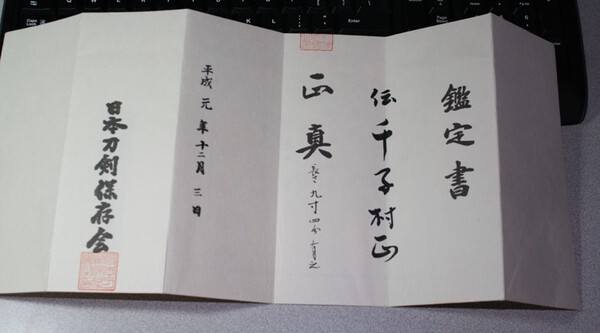 鑑定書
伝千子村正
正真
長サ九寸四分
平成元年十二月三日
日本刀剣保存会